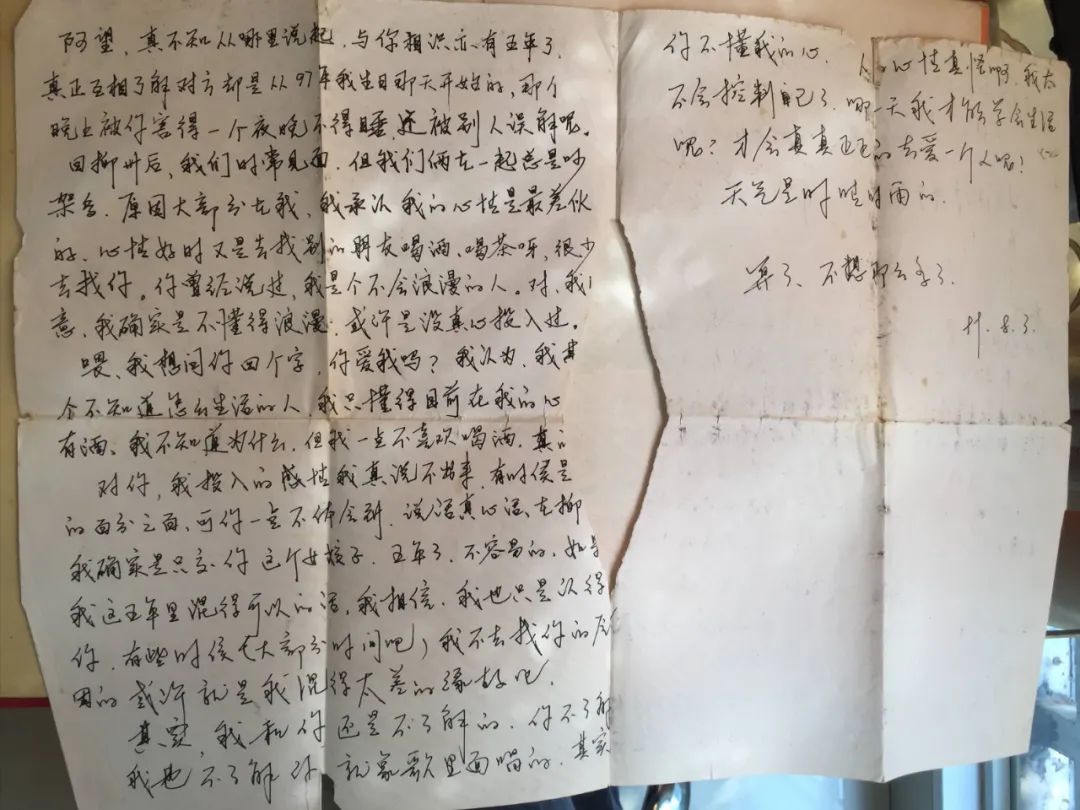 阿望，真不知从哪里说起，与你相识亦有五年了，
真正互相了解对方却是从97年我生日那天开始的，那个
晚上被你害得一个夜晚不得睡还被别人误解呢。
回柳州后，我们时常见面，但我们俩在一起总是吵
架多，原因大部分在我，我承认我的心情是最差伙
的，心情好时又是去找别的朋友喝酒、喝茶呀，很少
去找你。你曾经说过，我是个不会浪漫的人。对，我
意，我确实是不懂得浪漫，或许是没真心投入过。
喂、我想问你四个字，你爱我吗？我认为，我其
个不知道怎么生活的人，我只懂得目前在我的心
有酒、我不知道为什么，但我一点不喜欢喝酒，真的
对你，我投入的感情我真说不出来，有时候是
的百分之百，可你一点不体会到，说活真心话，在柳
我确实是只交你这个女孩子，五年了，不容易的，如果
我这五年里混得可以的话，我相信，我也只是认得
你，有些时候（大部分时间吧）我不去找你的原
因的或许就是我混得太差的缘故吧，
其实，我和你还是不了解的，你不了解
我也不了解你，就象歌里面唱的，其实
你不懂我的心，人的心情真怪啊，我太
不会控制自己了，哪一天我才能学会生活
呢？才会真真正正的去爱一个人呢？
天气是时晴时雨的，
算了、不想那么多了
8.3.